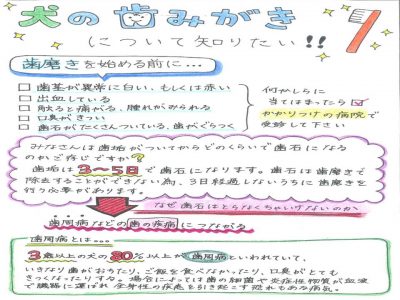 犬の歯みがき
について知りたい!!
歯磨きを始める前に…
□ 歯茎が異常に白い、もしくは赤い
□ 出血している
□ 触ると痛がる、腫れがみられる
□ 口臭がきつい
□ 歯石がたくさんついている、歯がぐらつく
何かしらに
当てはまったら
かかりつけの病院で
受診して下さい
みなさんは歯垢がついてからどのくらいで歯石になる
のかご存じですか?
歯垢は3〜5日で歯石になります。歯石は歯磨きで
除去することができない為、3日経過しないうちに歯磨きを
行う必要があります。
なぜ歯石はとらなくちゃいけないのか
歯周病などの歯の疾病につながる
歯周病とは…
3歳以上の犬の80%以上が歯周病といわれていて、
いきなり歯がおちたり、ご飯を食べなかったり、口臭がとても
きつくなったりする。場合によっては歯の細菌や炎症性物質が血液
で臓器に運ばれ全身性の疾患を引き起こす恐れもある病気。